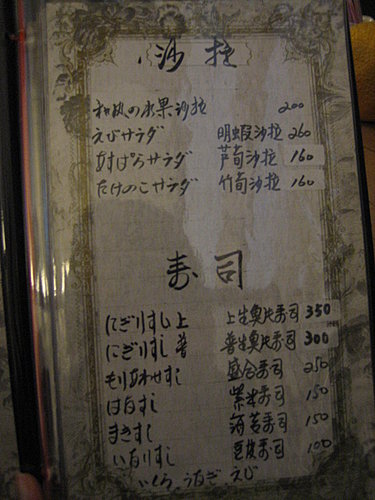 沙拉
和風の水果沙拉 200
えびサラダ 明蝦沙拉 260
あすぱらサラダ 芦荀沙拉 160
たけのこサラダ 竹荀沙拉 160
寿司
にぎりすし上 上生魚片寿司 350
にぎりすし普 普生魚片寿司 300
もりあわせすし 盛合寿司 250
はなすし 紫米寿司 150
まきすし 海苔寿司 150
いなりすし 豆皮寿司 100
いくら、うなぎ えび